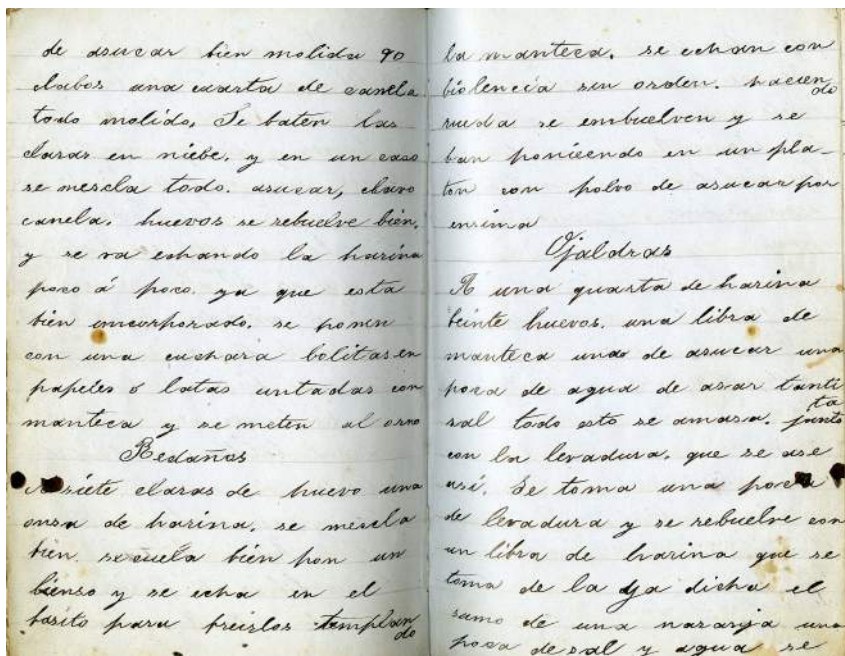 de asucar bien molida 90
clabos una cuarta de canela
todo molido, Se baten las
claras en niebe. y en un caso
se mescla todo. asucar, clavo
canela. huevos se rebuelve bien.
y se va echando la harina
poco á poco. ya que esta
bien emcorporado. se ponen
con una cuchara bolitas en
papeles o latas untadas con
manteca y se meten al orno
Redaños
A siete claras de huevo una
onsa de harina. se mescla
bien. se cuela bien por un
lienso y se echa en el
basito para freirlos templan
do
la manteca. se echan con
biolencia sin orden. hacien
do
rueda se embuelven y se
ban poniendo en un pla-
ton con polvo de asucar por
ensima
Ojaldras
A una quarta de harina
beinte huevos. una libra de
manteca una de asucar una
poca de agua de asar tanti
ta
sal todo esto se amasa. junto
con la levadura. que se ase
asi. Se toma una poca
de levadura y se rebuelve con
un libra de harina que se
toma de la ya dicha el
sumo de una naranja una
poca de sal y agua se